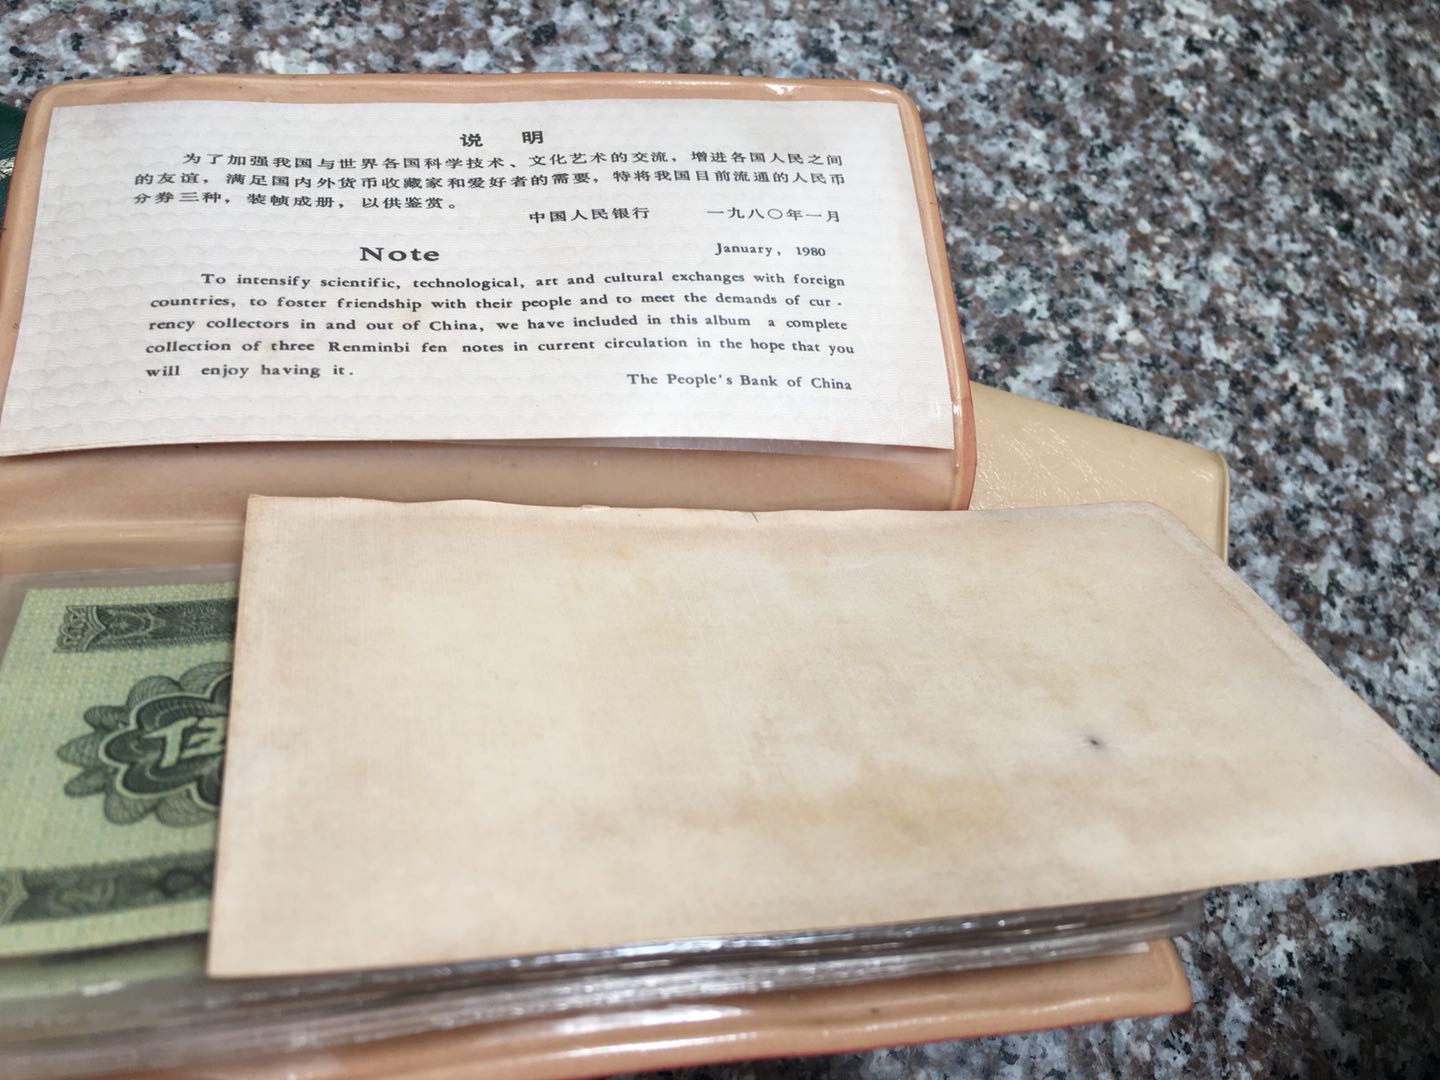 说 明
为了加强我国与世界各国科学技术、文化艺术的交流，增进各国人民之间
的友谊，满足国内外货币收藏家和爱好者的需要，特将我国目前流通的人民币
分券三种，装帧成册，以供鉴赏。
中国人民银行 一九八〇年一月
Note
January, 1980
To intensify scientific, technological, art and cultural exchanges with foreign
countries, to foster friendship with their people and to meet the demands of cur -
rency collectors in and out of China, we have included in this album a complete
collection of three Renminbi fen notes in current circulation in the hope that you
will enjoy having it.
The People's Bank of China
伍